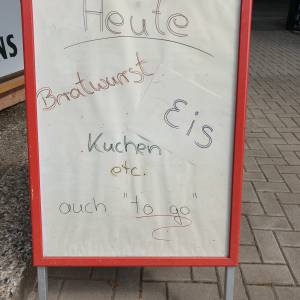 Heute
Bratwurst
Eis
Kuchen
etc.
auch "to go"
NS